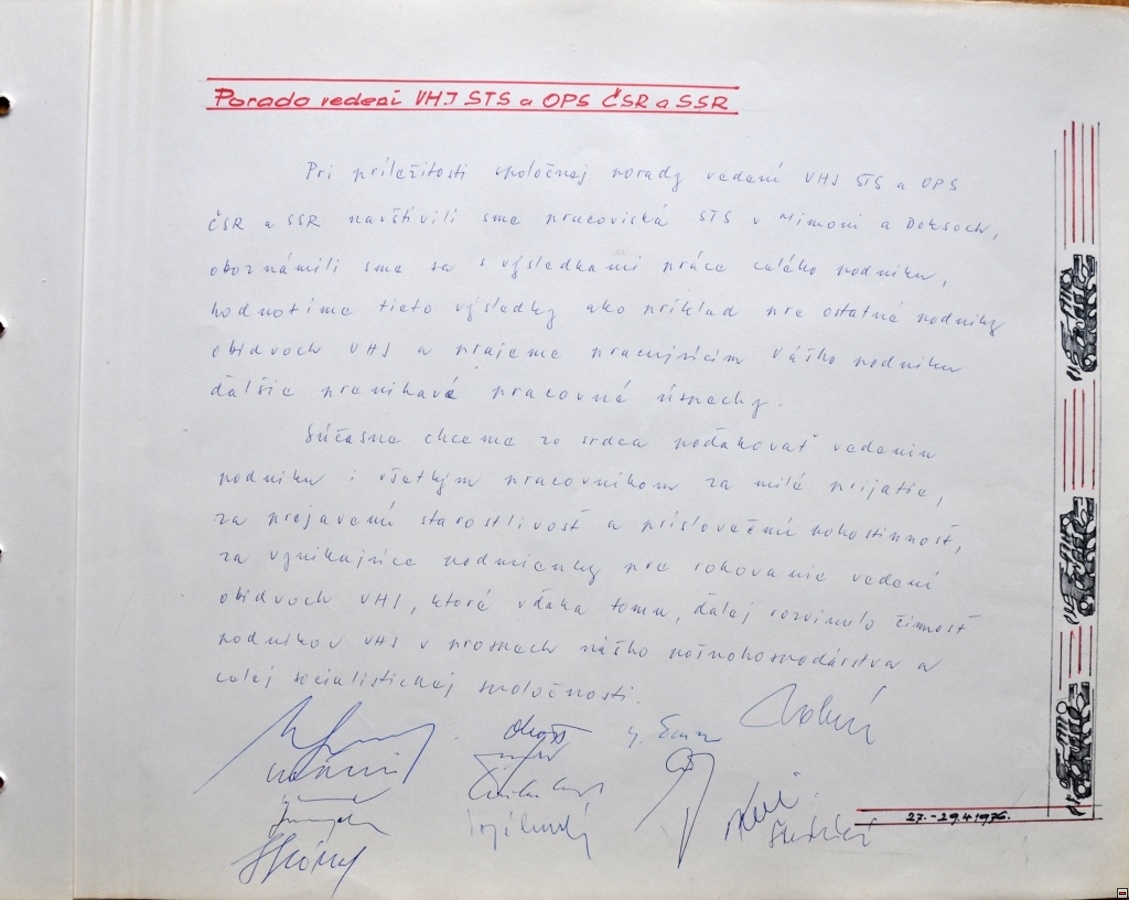 Porada vedení VHJ STS a OPS ČSR a SSR
Pri príležitosti spoločnej porady vedení VHJ STS a OPS
ČSR a SSR navštívili sme pracoviská STS v Mimoni a Doksoch,
oboznámili sme sa s výsledkami práce celého podniku,
hodnotíme tieto výsledky ako príklad pre ostatné podniky
obidvoch VHJ a prajeme pracujúcim Vášho podniku
ďalšie prenikavé pracovné úspechy.
Súčasne chceme zo srdca poďakovať vedeniu
podniku i všetkým pracovníkom za milé prijatie,
za prejavenú starostlivosť a príslovečnú pohostinnosť,
za vynikajúce podmienky pre rokovanie vedení
obidvoch VHJ, ktoré vďaka tomu, ďalej rozvinulo činnosť
podnikov VHJ v prospech nášho poľnohospodárstva a
celej socialistickej spoločnosti.
27.-29.4.1976.